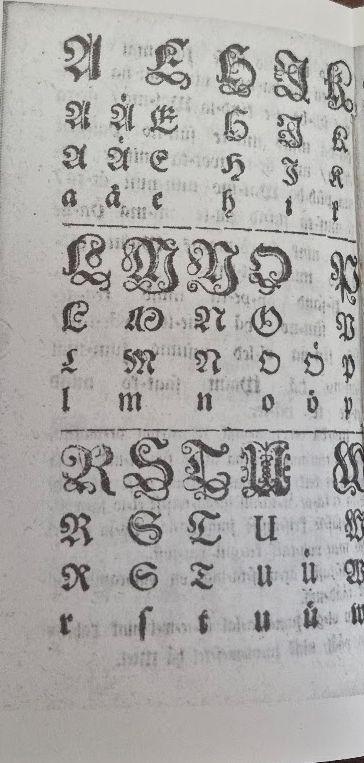 A E H I K
A Ä E H I K
A Ä E H I K
a ä e h i
L M N O P
L M N O P
L M N O Ö P
l m n o ö p
R S T U W
R S T U W
R S T U Ü W
r ſ t u ü w